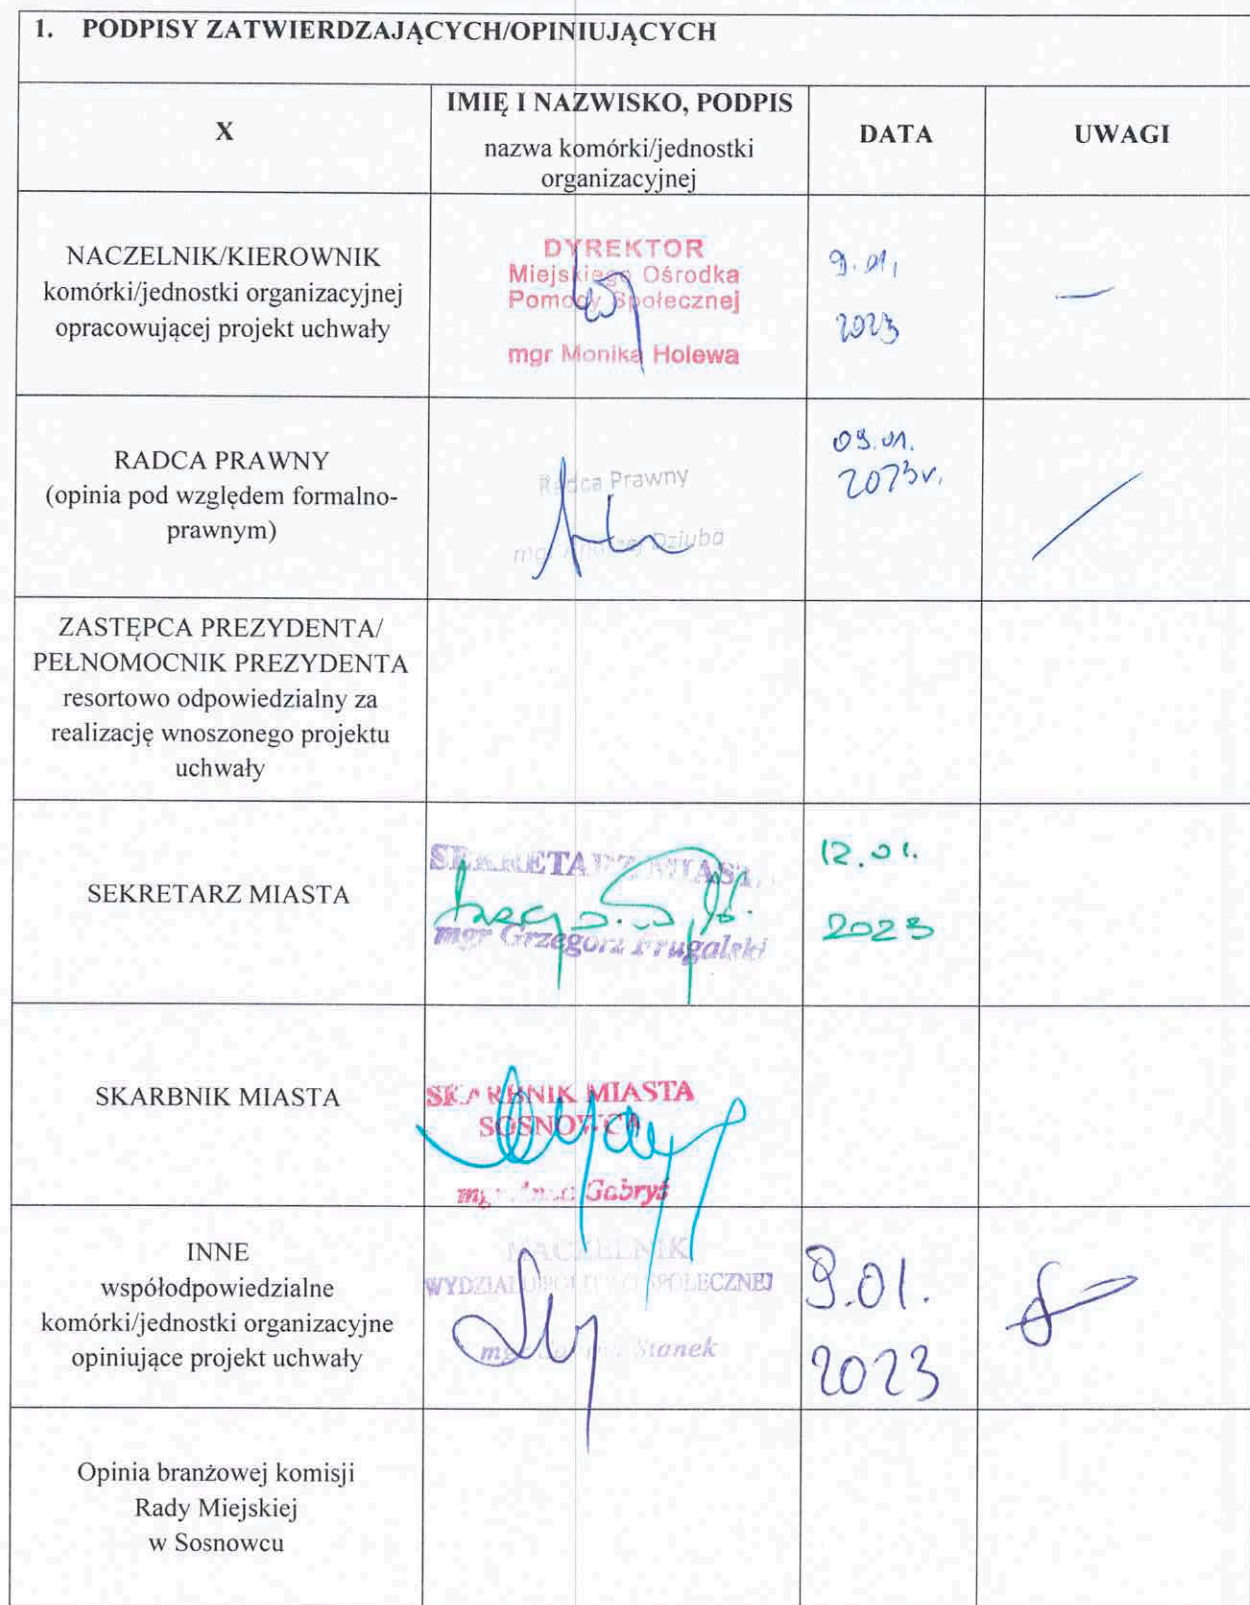 1. PODPISY ZATWIERDZAJĄCYCH/OPINIUJĄCYCH
X
IMIĘ I NAZWISKO, PODPIS
nazwa komórki/jednostki
organizacyjnej
DATA
UWAGI
NACZELNIK/KIEROWNIK
komórki/jednostki organizacyjnej
opracowującej projekt uchwały
DYREKTOR
Miejskiego Ośrodka
Pomocy Społecznej
mgr Monika Holewa
9.01,
2023
—
RADCA PRAWNY
(opinia pod względem formalno-
prawnym)
Radca Prawny
mgr Andrzej Dziuba
09.01.
2023r.
ZASTĘPCA PREZYDENTA/
PEŁNOMOCNIK PREZYDENTA
resortowo odpowiedzialny za
realizację wnoszonego projektu
uchwały
SEKRETARZ MIASTA
SEKRETARZ MIASTA
mgr Grzegorz Frugalski
12.01.
2023
SKARBNIK MIASTA
SKARBNIK MIASTA
SOSNOWCA
mgr Gabryś
INNE
współodpowiedzialne
komórki/jednostki organizacyjne
opiniujące projekt uchwały
NACZELNIK
WYDZIAŁU POLITYKI SPOŁECZNEJ
mgr Stanek
9.01.
2023
Opinia branżowej komisji
Rady Miejskiej
w Sosnowcu